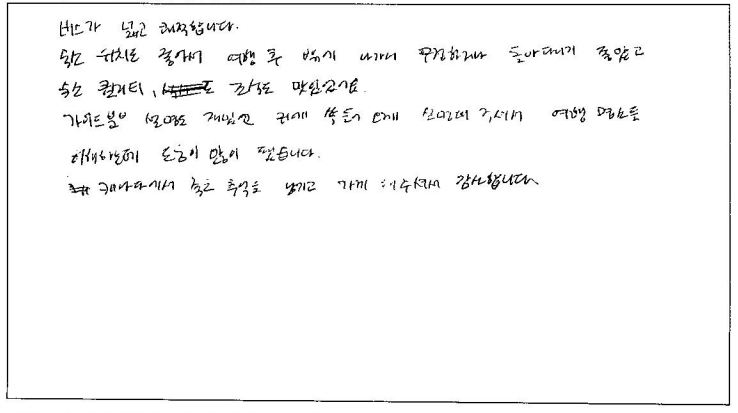 버스가 넓고 쾌적합니다.
숙소 위치도 좋아서 여행 후 밖에 나가서 구경하거나 돌아다니기 좋았고
숙소 퀄리티, 조식도 맛있었고요.
가이드분이 설명도 재밌고 귀에 쏙 들어오게 설명해 주셔서 여행 명소를
이해하는데 도움이 많이 됐습니다.
캐나다에서 좋은 추억을 남기고 가게 해주셔서 감사합니다